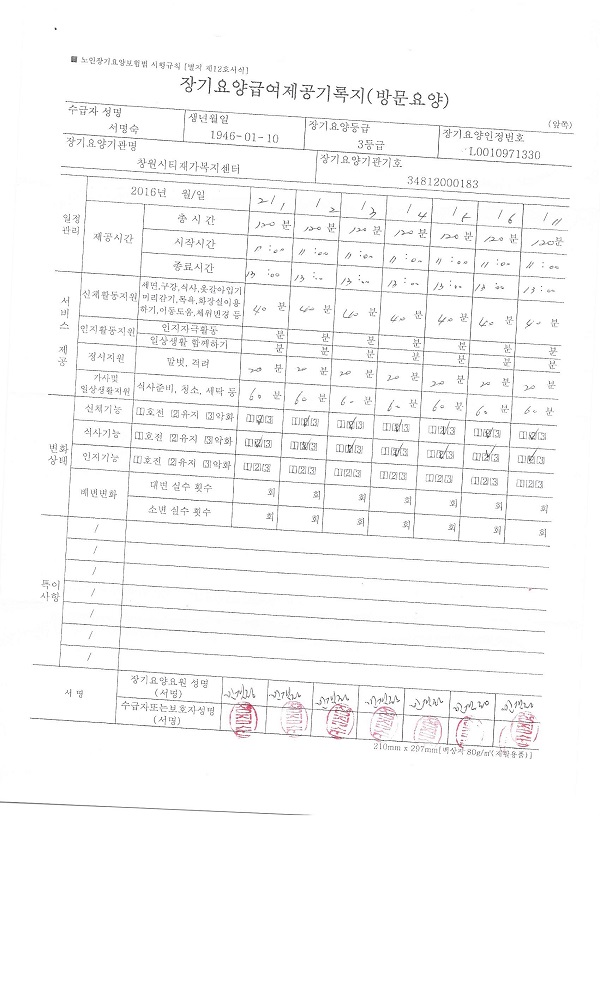 ■ 노인장기요양보험법 시행규칙 [별지 제12호서식]
장기요양급여제공기록지(방문요양)
(앞쪽)
수급자 성명 생년월일 장기요양등급 장기요양인정번호
서명숙 1946-01-10 3등급 L0010971330
장기요양기관명 장기요양기관기호
창원시티재가복지센터 34812000183
일정관리 2016년 월/일 2/1 / 2 / 3 / 4 / 5 / 6 / 11
제공시간 총 시 간 120 분 120 분 120 분 120 분 120 분 120 분 120 분
시작시간 11:00 11:00 11:00 11:00 11:00 11:00 11:00
종료시간 13:00 13:00 13:00 13:00 13:00 13:00 13:00
서비스 제공 신체활동지원 세면,구강,식사,옷갈아입기
머리감기,목욕,화장실이용
하기,이동도움,체위변경 등 40 분 40 분 40 분 40 분 40 분 40 분 40 분
인지활동지원 인지자극활동 분 분 분 분 분 분 분
일상생활 함께하기 분 분 분 분 분 분 분
정서지원 말벗, 격려 20 분 20 분 20 분 20 분 20 분 20 분 20 분
가사및
일상생활지원 식사준비, 청소, 세탁 등 60 분 60 분 60 분 60 분 60 분 60 분 60 분
변화상태 신체기능 1호전 2유지 3악화 123 123 123 123 123 123 123
식사기능 1호전 2유지 3악화 123 123 123 123 123 123 123
인지기능 1호전 2유지 3악화 123 123 123 123 123 123 123
배변변화 대변 실수 횟수 회 회 회 회 회 회 회
소변 실수 횟수 회 회 회 회 회 회 회
특이사항 /
/
/
/
/
/
/
서 명 장기요양요원 성명
(서명)
수급자또는보호자성명
(서명)
210mm x 297mm[백상지 80g/㎡(재활용품)]